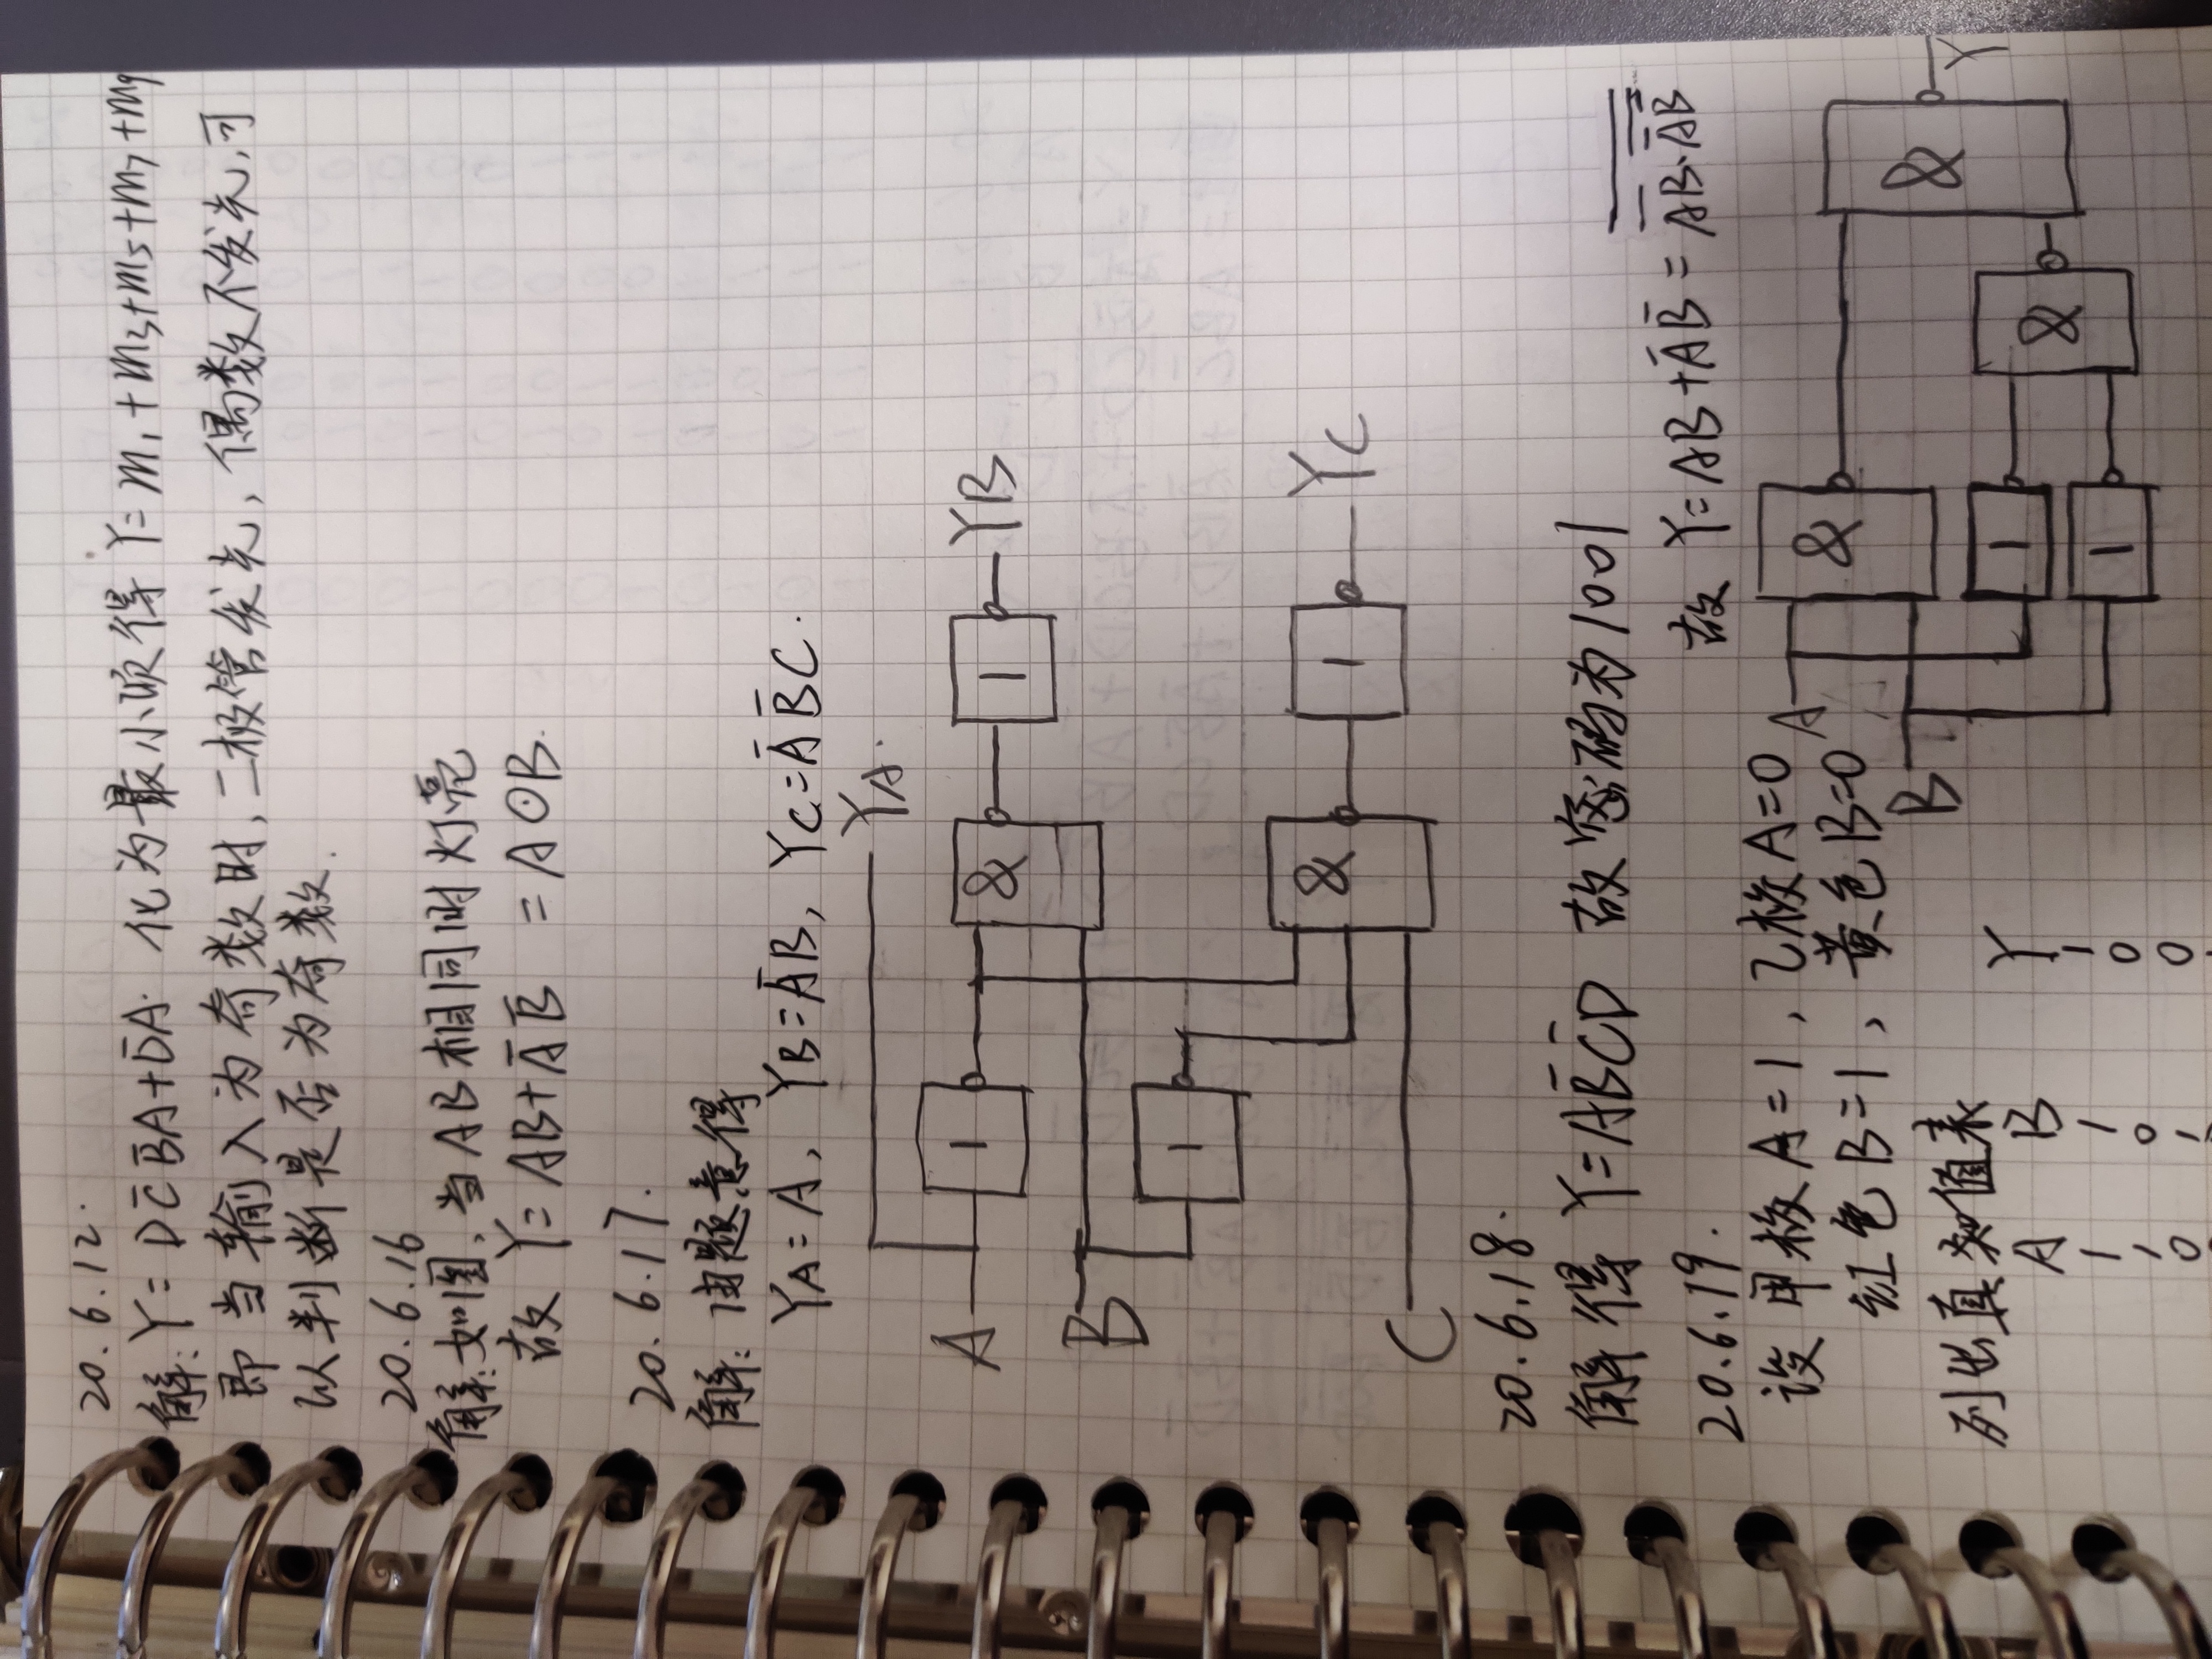 20.6.12.
解: Y = DC̄B̄A+D̄A. 化为最小项得 Y= m₁+m₃+m₅+m₇+m₉
即当输入为奇数时,二极管发光,偶数不发光,可
以判断是否为奇数.
20.6.16
解:如图,当AB相同时灯亮
故 Y= AB+ĀB̄ = A⊙B.
20.6.17.
解: 由题意得
YA=A, YB=ĀB, YC=ĀB̄C.
YA.
A 1 & 1 YB
B
1
& 1 YC
C
20.6.18.
解 得 Y=AB̄C̄D 故密码为1001
20.6.19.
设 甲校A=1, 乙校A=0
红色B=1, 黄色B=0
列出真值表
A B Y
1 1 1
1 0 0
0 1 0
故 Y=AB+ĀB̄ = \overline{\overline{AB}·\overline{ĀB̄}}
A &
B
&
Y
1
&
1